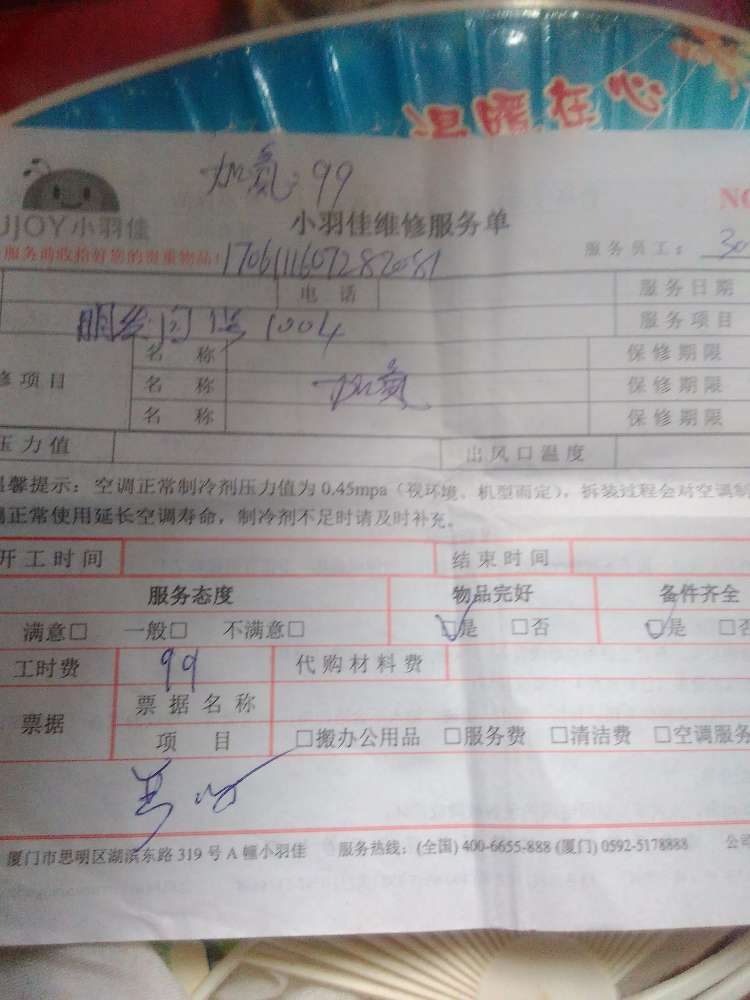 温暖在心
加氟:99
UJOY小羽佳
小羽佳维修服务单
NO
服务前收拾好您的贵重物品!
服务员工: 30
电 话
服务日期
1004
服务项目
修项目
名 称
保修期限
名 称
加氟
保修期限
名 称
保修期限
压力值
出风口温度
温馨提示:空调正常制冷剂压力值为0.45mpa(视环境、机型而定),拆装过程会对空调制
正常使用延长空调寿命,制冷剂不足时请及时补充。
开工时间
结束时间
服务态度
物品完好
备件齐全
满意□ 一般□ 不满意□
□是 □否
□是 □否
工时费
99
代购材料费
票据
票据名称
项 目
□搬办公用品 □服务费 □清洁费 □空调服务
厦门市思明区湖滨东路 319 号 A 幢小羽佳 服务热线:(全国) 400-6655-888 (厦门) 0592-5178888 公司